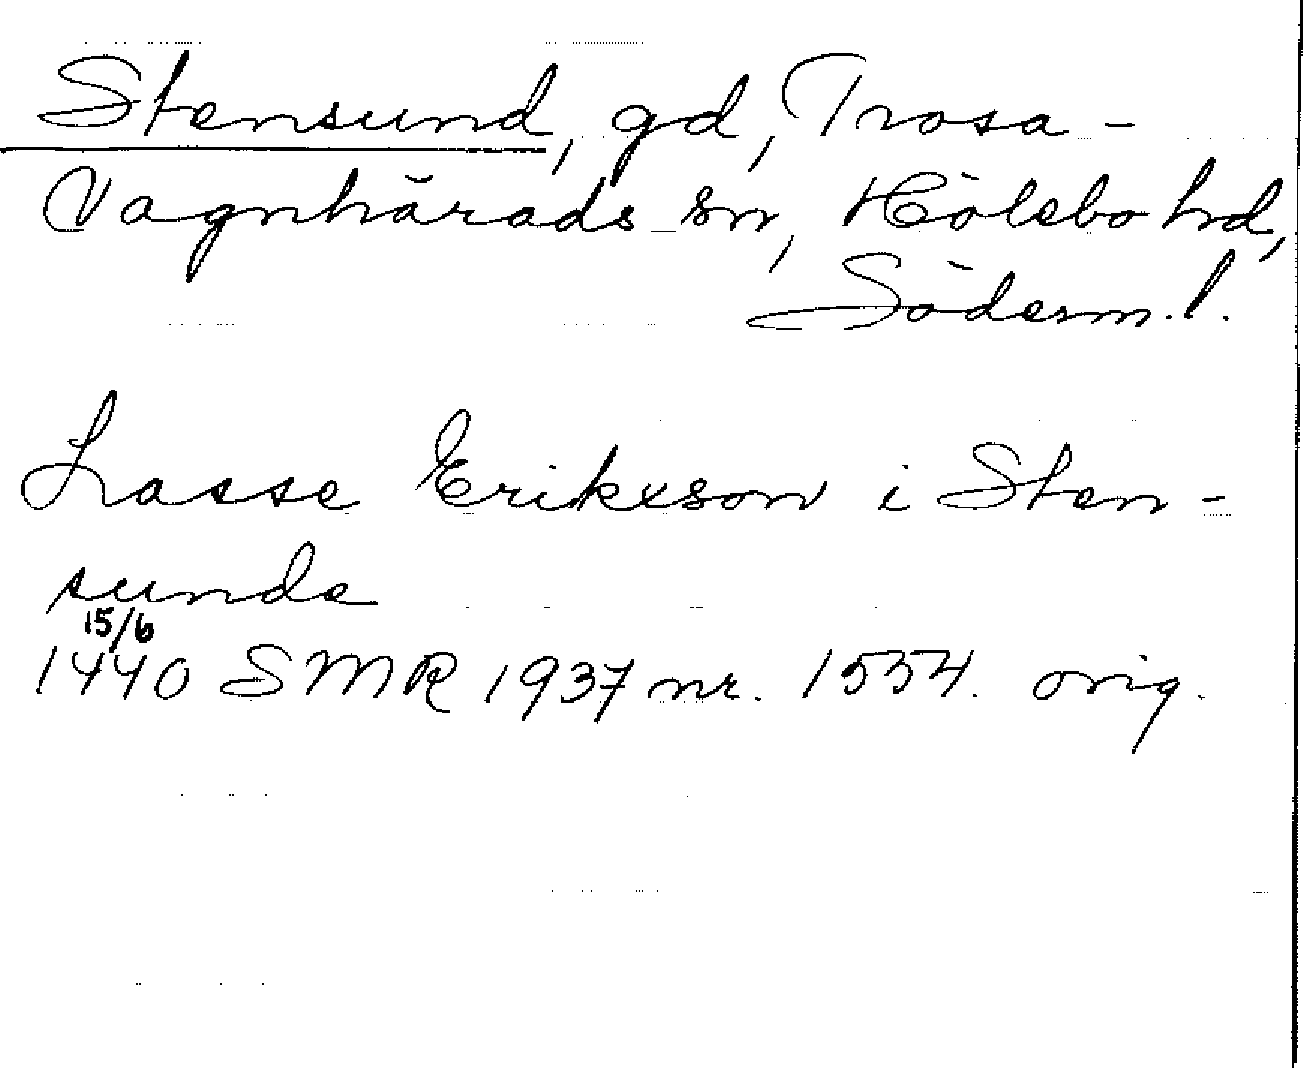 Stensund, gd, Trosa-
Vagnhärads sn, Hölebo hd,
Söderm. l.
Lasse Erikxson i Sten-
sunde
15/6
1440 SMR 1937 nr. 1554. orig.